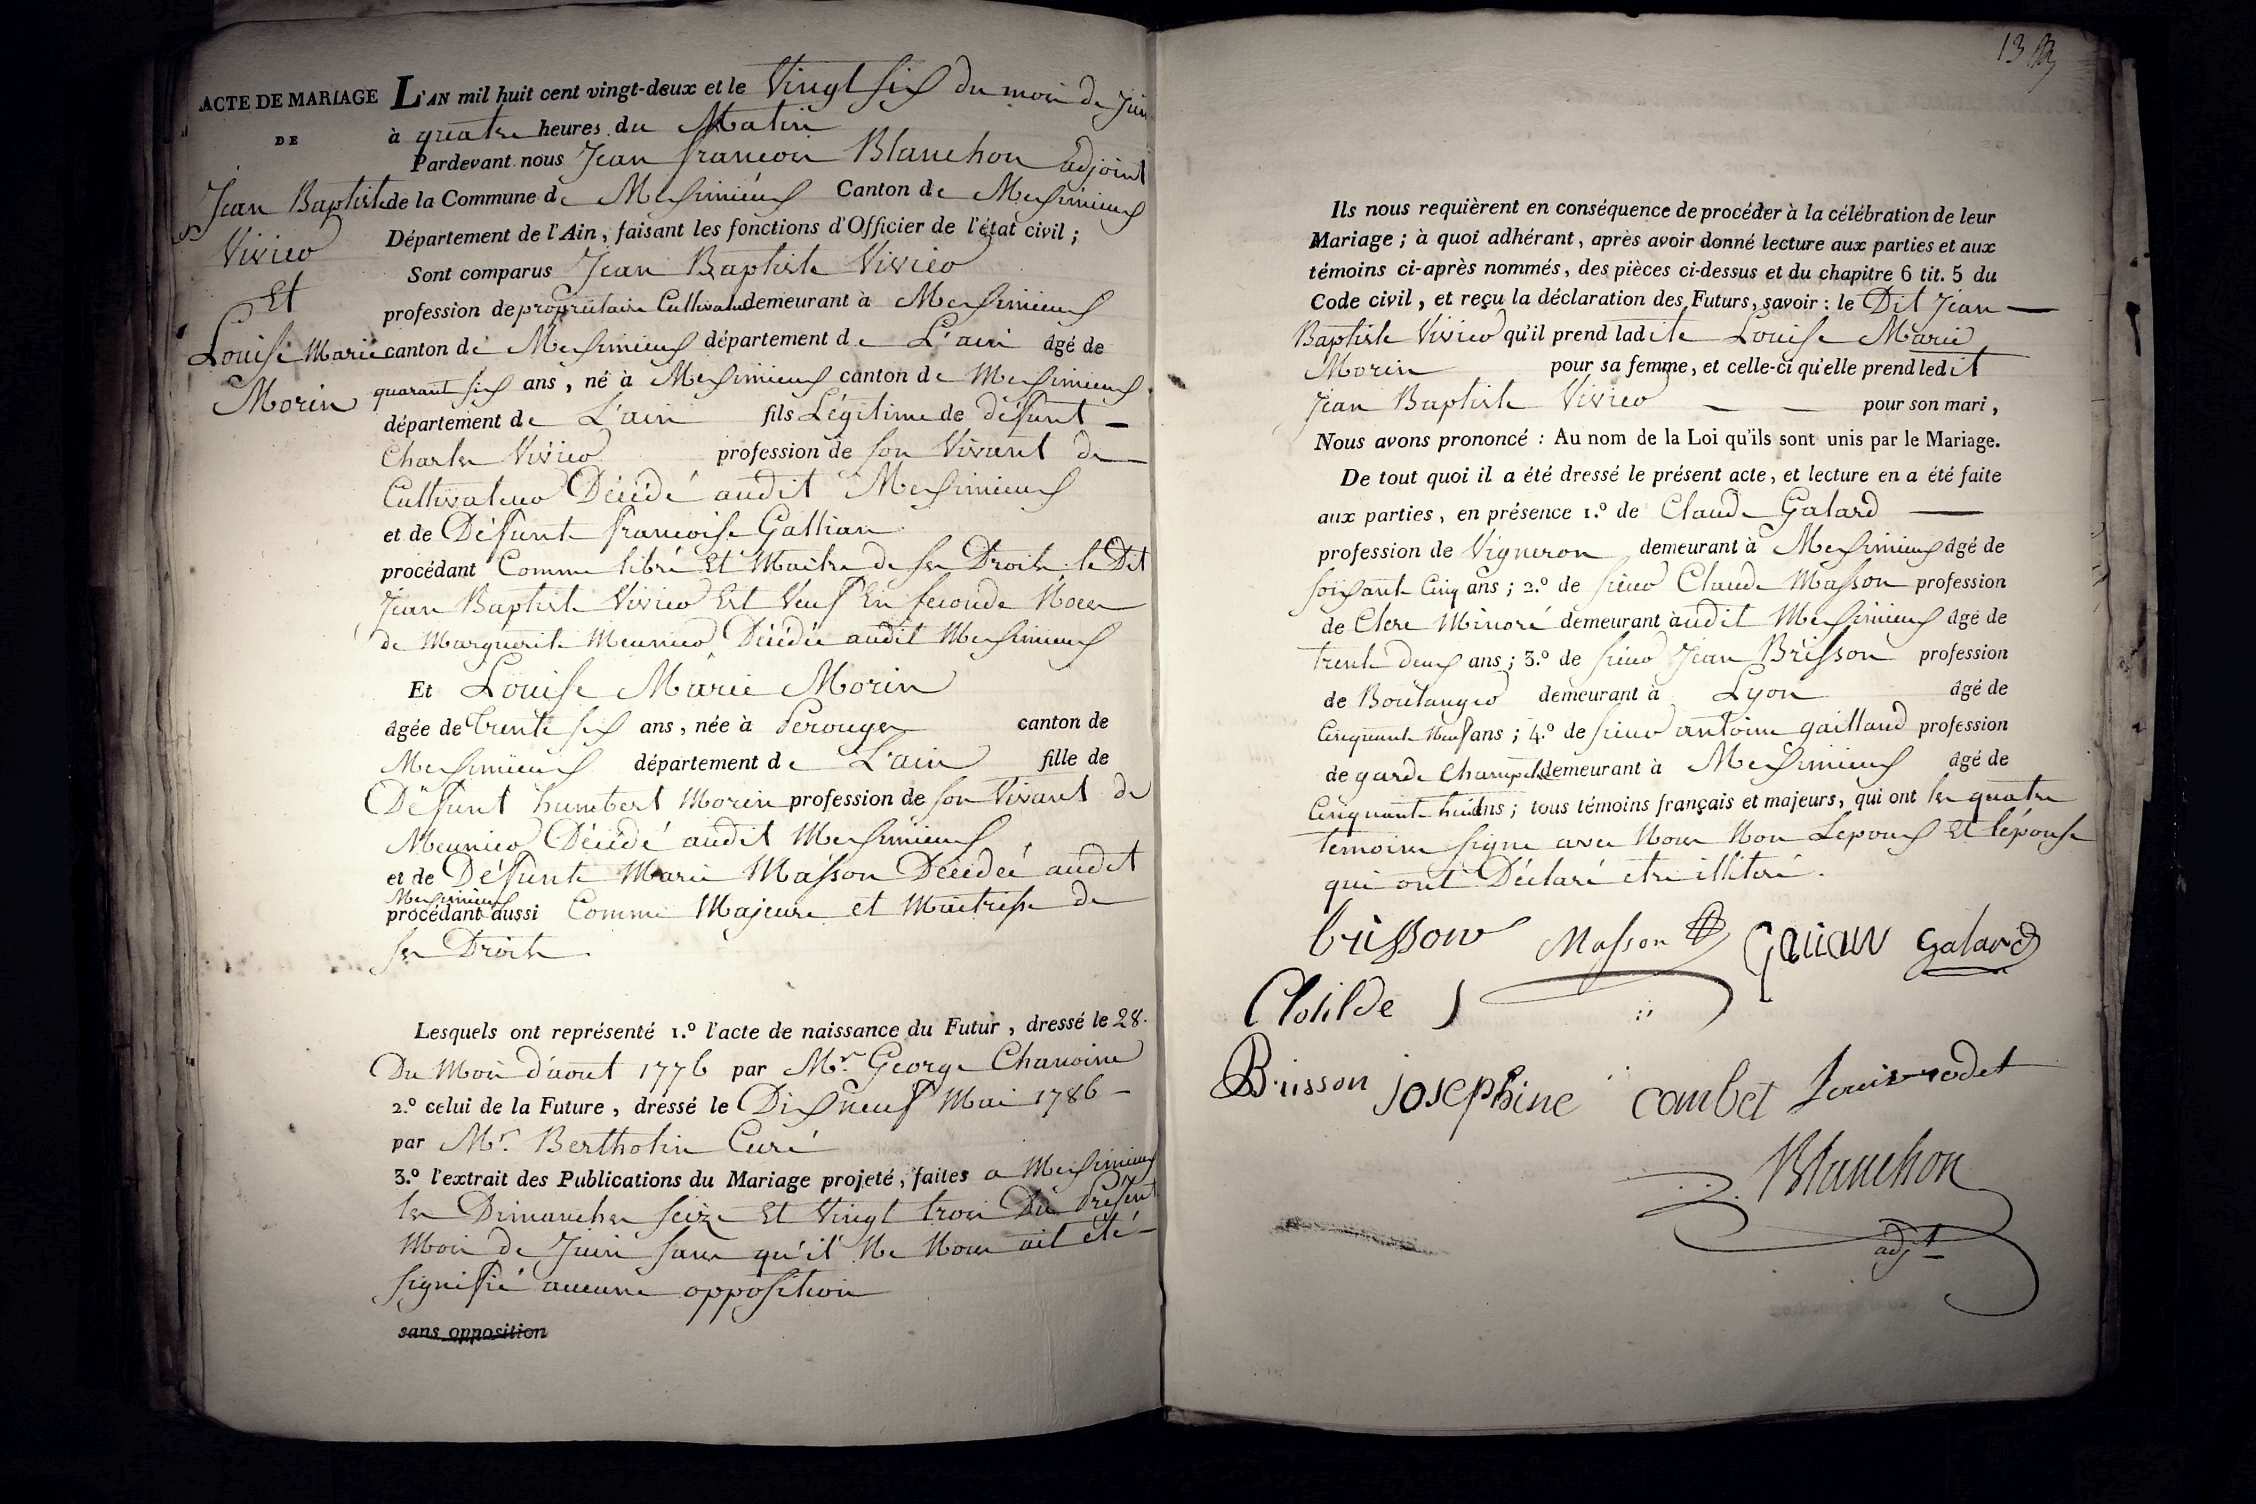 ACTE DE MARIAGE
DE
Jean Baptiste
Vivier
Et
Louise Marie
Morin
L'AN mil huit cent vingt-deux et le Vingt six du mois de Juin
à quatre heures du Matin
Pardevant nous Jean françois Blanchon adjoint
de la Commune de Meximieux Canton de Meximieux
Département de l'Ain, faisant les fonctions d'Officier de l'état civil;
Sont comparus Jean Baptiste Vivier
profession de propriétaire Cultivateur demeurant à Meximieux
canton de Meximieux département de L'ain âgé de
quarante six ans, né à Meximieux canton de Meximieux
département de L'ain fils Légitime de défunt
Charles Vivier profession de son Vivant de
Cultivateur Décédé audit Meximieux
et de Défunte françoise Gallian
procédant Comme libre Et Maitre de ses Droits. le Dit
Jean Baptiste Vivier Est Veuf En seconde Noces
de Marguerite Meunier Décédée audit Meximieux
Et Louise Marie Morin
âgée de trente six ans, née à Perouges canton de
Meximieux département de L'ain fille de
Défunt humbert Morin profession de son Vivant de
Meunier Décédé audit Meximieux
et de Défunte Marie Masson Décédée audit
Meximieux
procédant aussi Comme Majeure et Maitresse de
ses Droits
Lesquels ont représenté 1.º l'acte de naissance du Futur, dressé le 28.
Du Mois d'aout 1776 par Mr. George Chanoine
2.º celui de la Future, dressé le Dix neuf Mai 1786
par Mr. Bertholin Curé
3.º l'extrait des Publications du Mariage projeté, faites a Meximieux
les Dimanches seize Et Vingt trois Du Présent
Mois de Juin sans qu'il Ne Nous ait été
signifié aucune opposition
sans opposition
13
Ils nous requièrent en conséquence de procéder à la célébration de leur
Mariage; à quoi adhérant, après avoir donné lecture aux parties et aux
témoins ci-après nommés, des pièces ci-dessus et du chapitre 6 tit. 5 du
Code civil, et reçu la déclaration des Futurs, savoir: le Dit Jean
Baptiste Vivier qu'il prend ladite Louise Marie
Morin pour sa femme, et celle-ci qu'elle prend ledit
Jean Baptiste Vivier pour son mari,
Nous avons prononcé: Au nom de la Loi qu'ils sont unis par le Mariage.
De tout quoi il a été dressé le présent acte, et lecture en a été faite
aux parties, en présence 1.º de Claude Galard
profession de Vigneron demeurant à Meximieux âgé de
soixante Cinq ans; 2.º de sieur Claude Masson profession
de Clerc Minoré demeurant audit Meximieux âgé de
trente deux ans; 3.º de sieur Jean Brisson profession
de Boulanger demeurant à Lyon âgé de
Cinquante Neuf ans; 4.º de sieur antoine gailland profession
de garde Champetre demeurant à Meximieux âgé de
Cinquante huit ans; tous témoins français et majeurs, qui ont les quatre
temoins signé avec Nous Non Lepoux Et l'épouse
qui ont Déclaré etre illiteré.
brisson Masson Galard
Clotilde
Brisson josephine combet Louis rodet
Blanchon
adjt